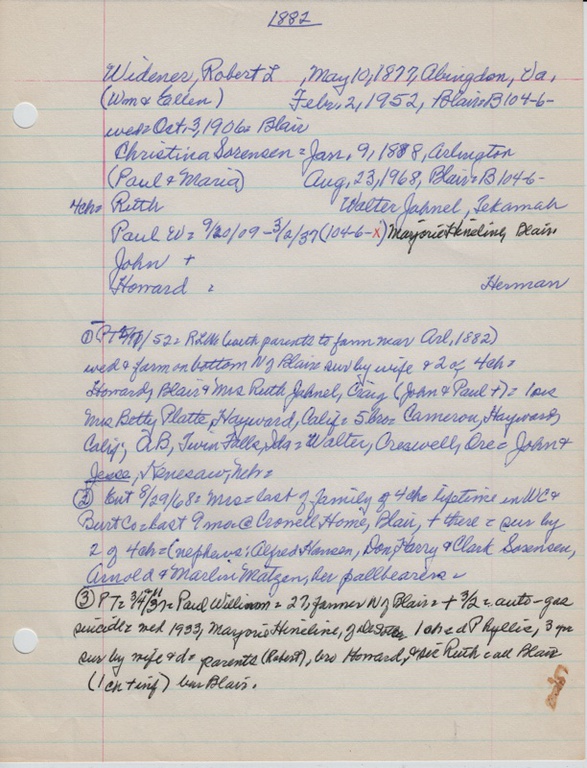 1882
Widener, Robert L , May 10, 1877, Abingdon, Va,
(Wm & Ellen) Febr. 2, 1952, Blair = B104-6-
wed = Oct. 3, 1906 = Blair
Christina Sorensen = Jan. 9, 1888, Arlington
(Paul & Maria) Aug. 23, 1968, Blair = B104-6-
4ch = Ruth Walter Jahnel, Tekamah
Paul W = 9/20/09 - 3/2/37 (104-6-x) Marjorie Heneline, Blair
John +
Howard = Herman
① PT /52 = RLW (with parents to farm near Arl, 1882)
wed & farm on bottom N of Blair = sur by wife & 2 of 4ch =
Howard, Blair & Mrs Ruth Jahnel, Craig (John & Paul +) = 1 sis
Mrs Betty Platte, Hayward, Calif = 5 bro = Cameron, Hayward,
Calif; AB, Twin Falls, Ida = Walter, Creswell, Ore = John &
Jesse, Kenesaw, Neb =
② Ent 8/29/68 = Mrs = last of family of 4ch = lifetime in WC &
Burt Co = last 9 mo @ Crowell Home, Blair, + there = sur by
2 of 4ch = (nephews: Alfred Hansen, Don, Harry & Clark Sorensen,
Arnold & Marlin Matzen, her pallbearers =
③ PT = 3/4/37 = Paul William = 27, farmer N of Blair = + 3/2 = auto-gas
suicide = wed 1933, Marjorie Heneline, of DeSoto 1 ch = d Phyllis, 3 yr
sur by wife & d = parents (Robert), bro Howard, & sis Ruth = all Blair
(1 ch + inf) bur Blair.